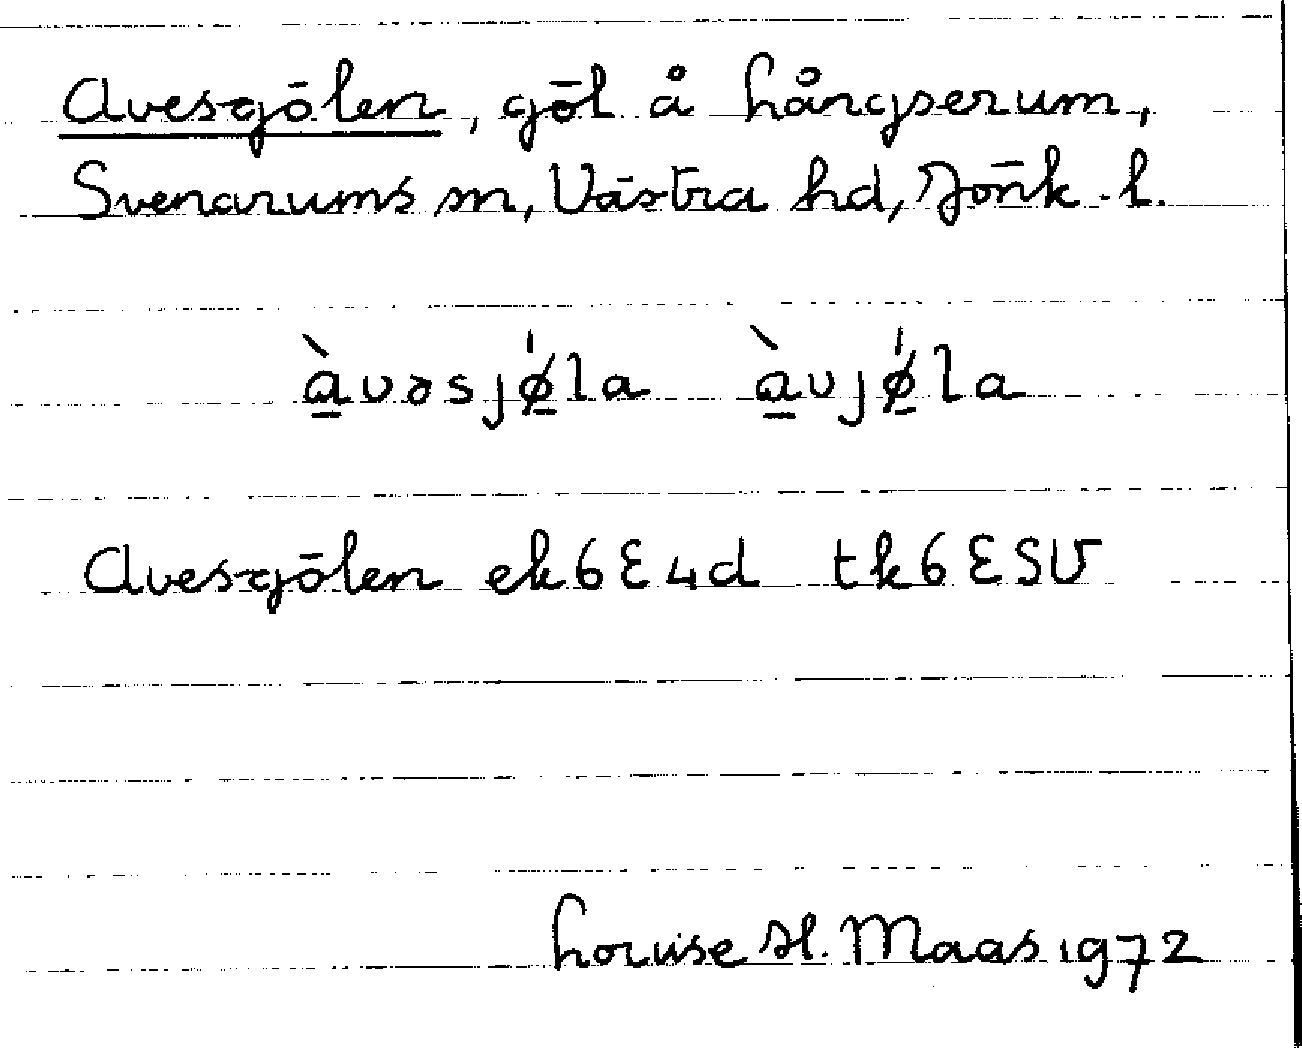 Avesgölen, göl å Långserum,
Svenarums sn, Västra hd, Jönk. l.
à̠vəsjǿ̠la à̠vjǿ̠la
Avesgölen ek6E4d tk6ESV
Louise H. Maas 1972